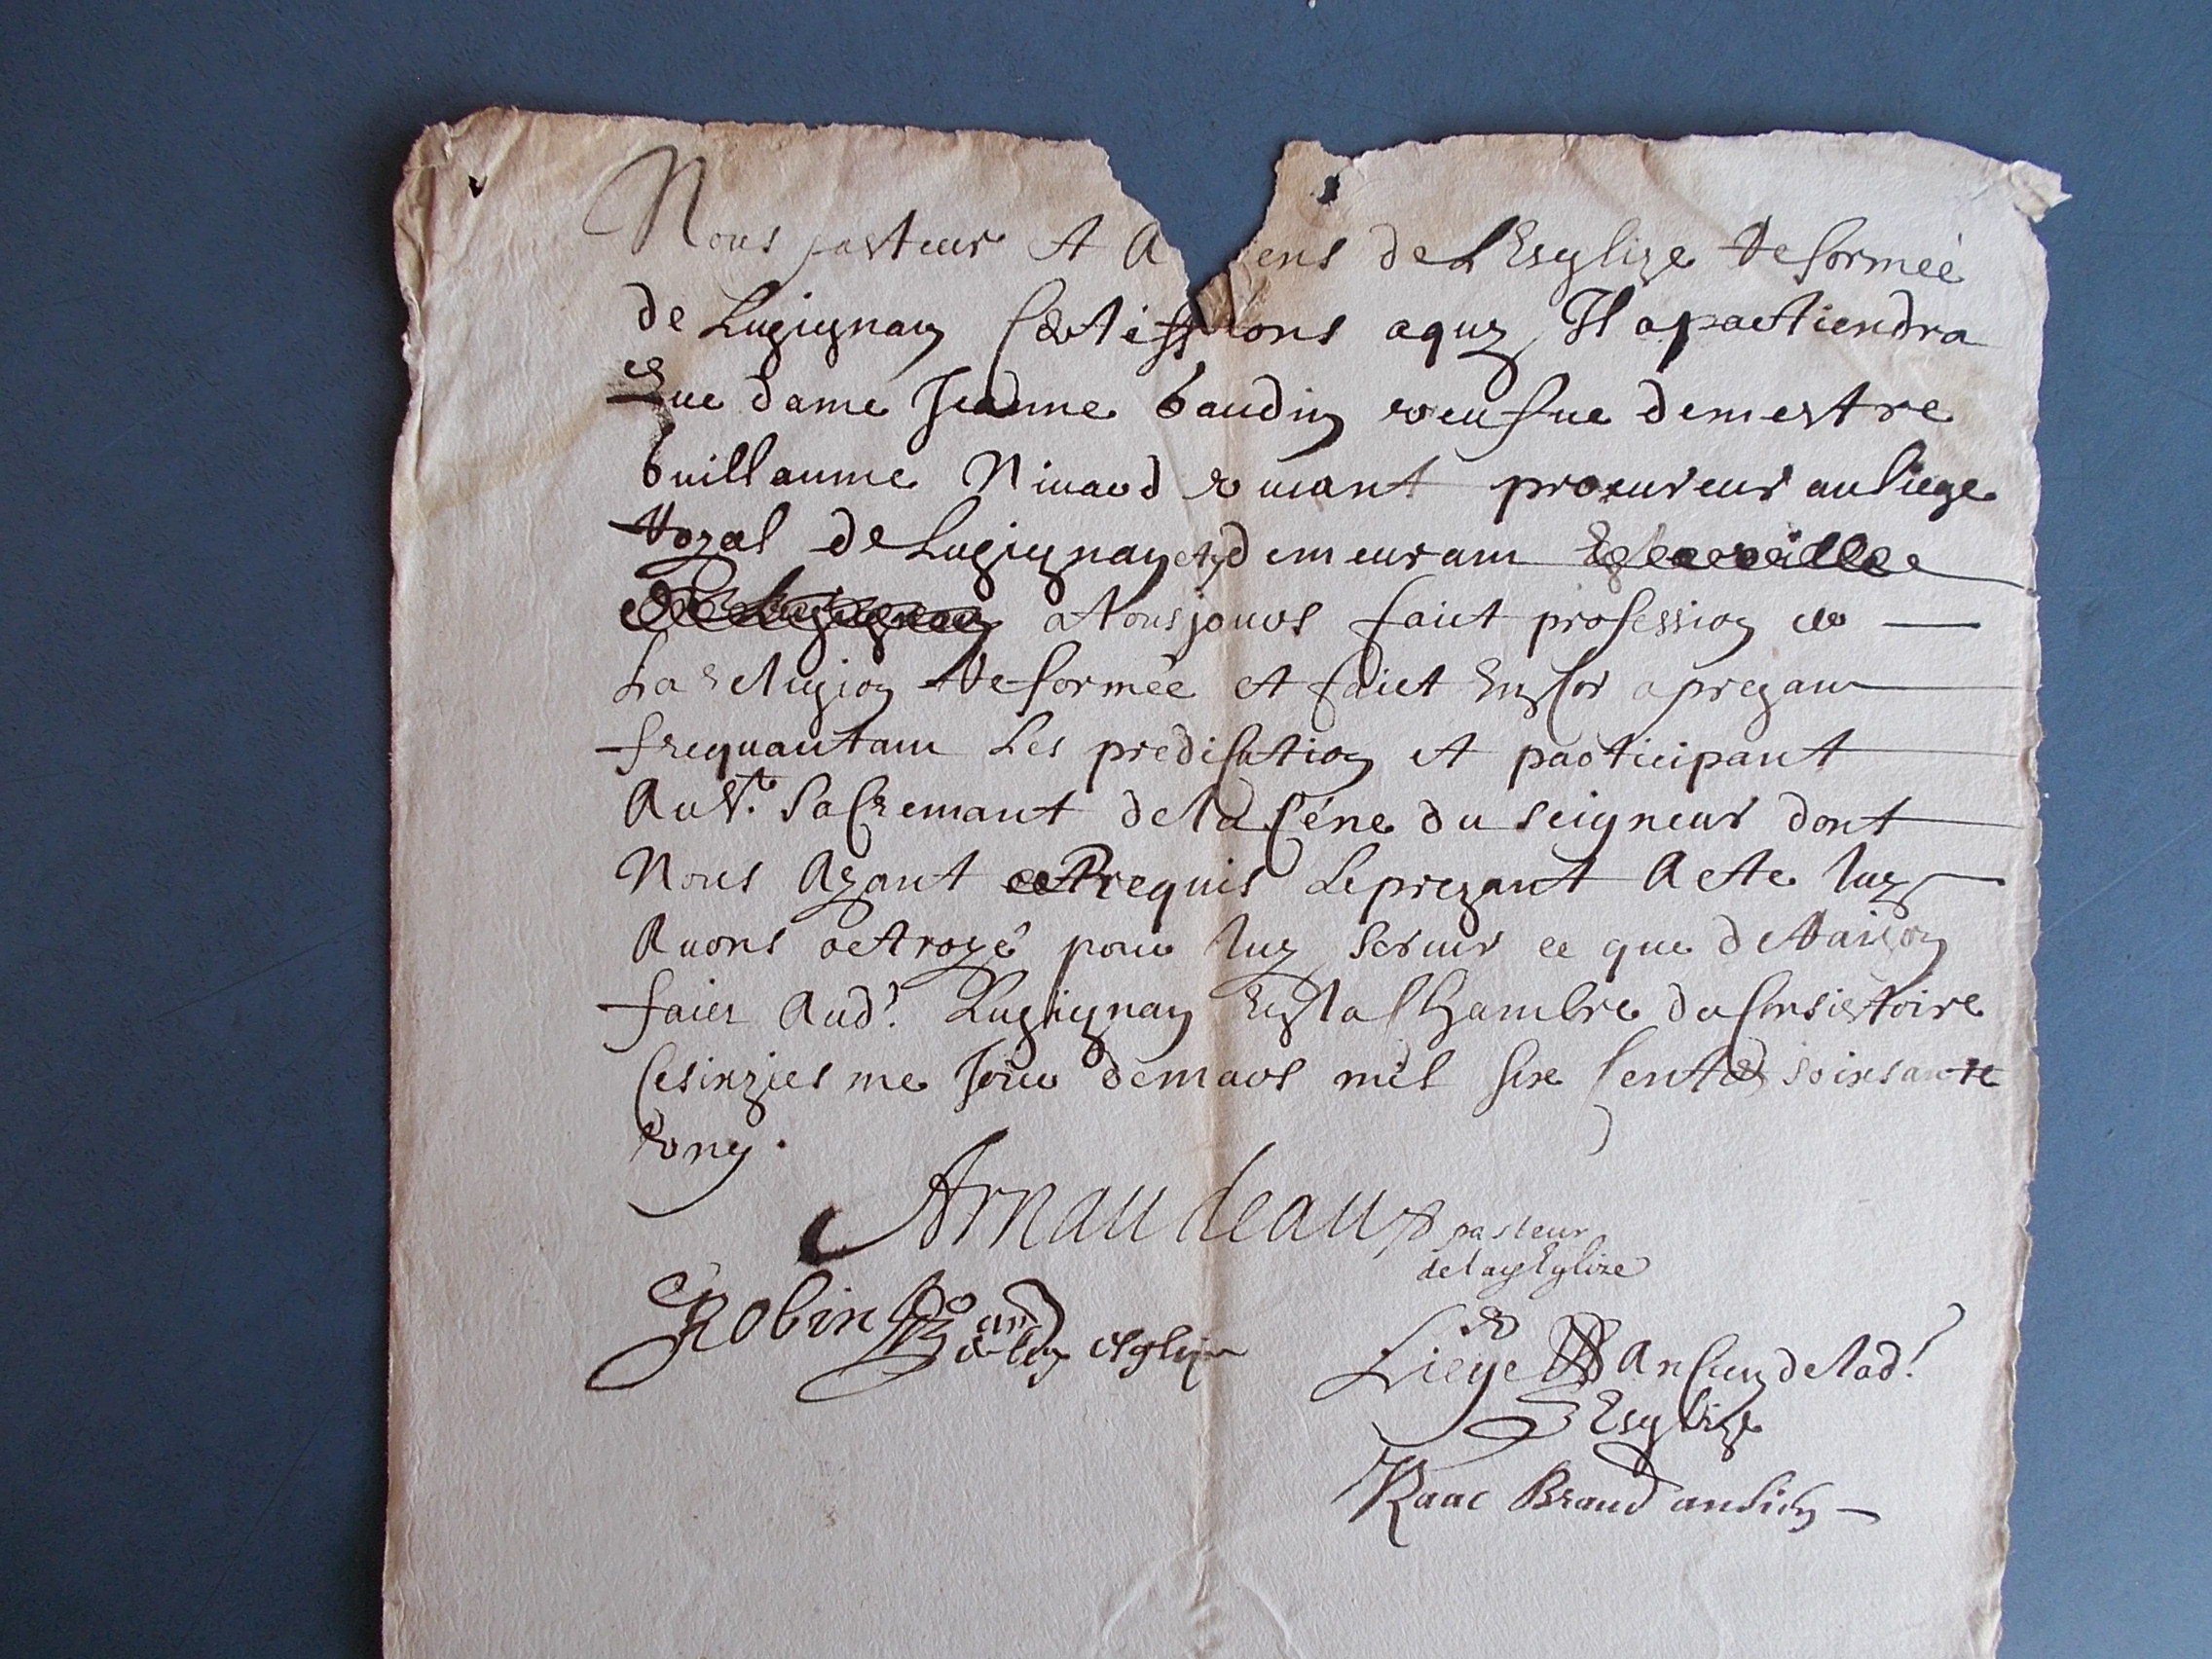 Nous pasteur et A ens de L'Esglize Reformée
de Luzignan Certiffions a quy Il apartiendra
Que dame Jeanne baudin veufue de mestre
Guillaume Niuard viuant procureur au siege
Royal de Luzignan et y demeurant
a tousjours faict profession de
La religion Reformée et faict Encor a prezant
frequantant Les predication et participant
Au St. Sacremant de la Céne du seigneur dont
Nous Ayant requis Le prezant Acte luy
Auons octroyé pour luy seruir ce que de Raizon
faict Aud. Luzignan En la Chambre du Consistoire
Ce sixziesme Jour de mars mil six Cents soixsante
vng.
Arnaudeau pasteur
de lad Eglize
Robin an
de lad esglize
Liege Ancien de lad.
Esglize
Isaac Braud ansien